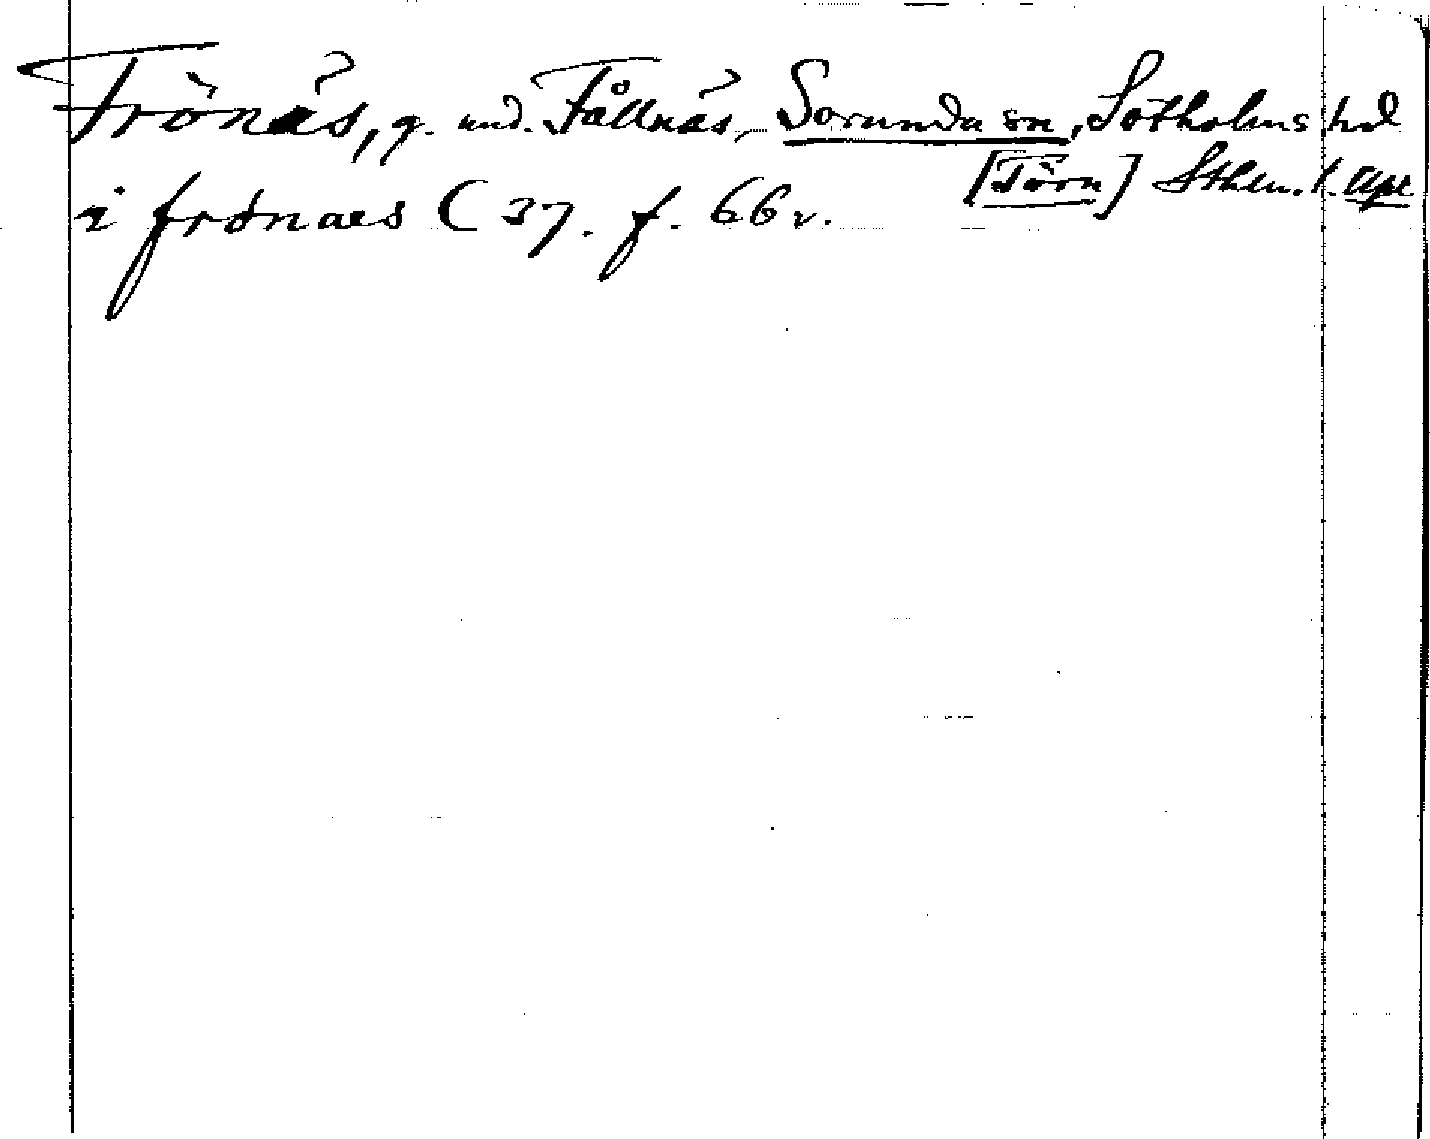 Frönäs, g. und. Fållnäs, Sorunda sn, Sotholms hd
[Törn] Sthlm. l. Upl
i frönaes C 37. f. 66 v.